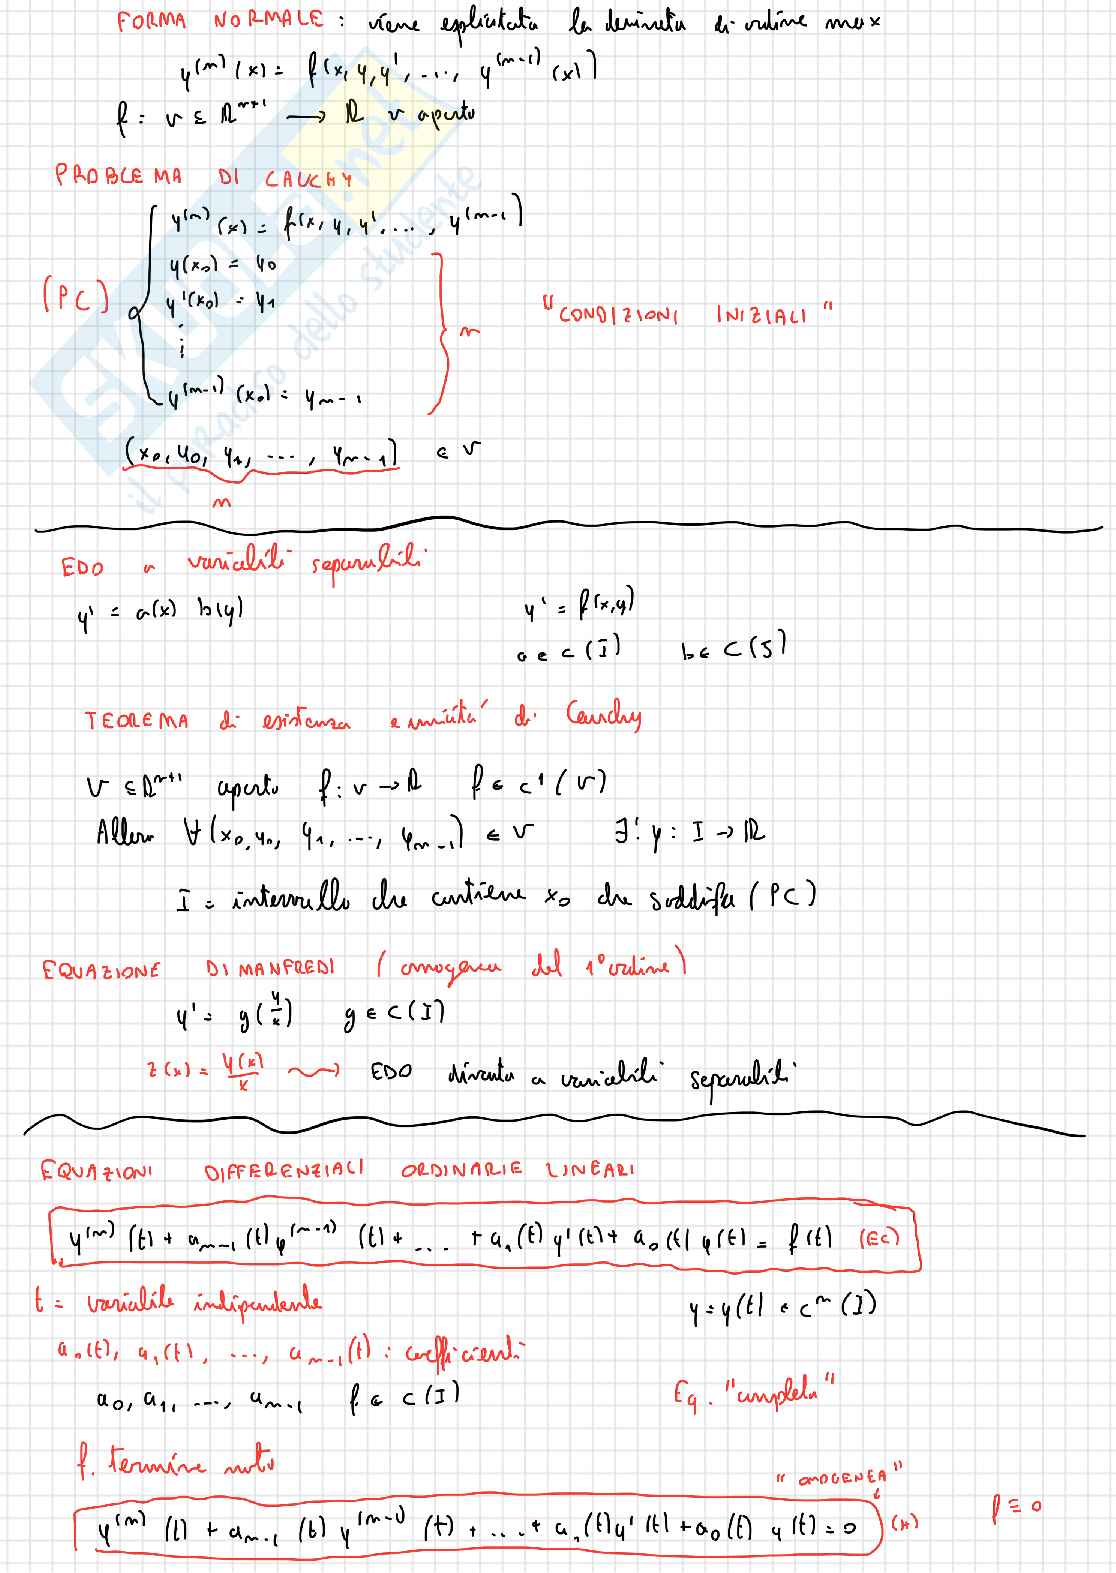 FORMA NORMALE : viene esplicitata la derivata di ordine max
y⁽ⁿ⁾(x) = f(x, y, y', ..., y⁽ⁿ⁻¹⁾(x))
f : V ⊆ ℝⁿ⁺¹ → ℝ V aperto
PROBLEMA DI CAUCHY
y⁽ⁿ⁾(x) = f(x, y, y', ..., y⁽ⁿ⁻¹⁾)
y(x₀) = y₀
(PC) y'(x₀) = y₁ n "CONDIZIONI INIZIALI"
⋮
y⁽ⁿ⁻¹⁾(x₀) = yₙ₋₁
(x₀, y₀, y₁, ..., yₙ₋₁) ∈ V
n
EDO a variabili separabili
y' = a(x) b(y) y' = f(x,y)
a ∈ C(I) b ∈ C(J)
TEOREMA di esistenza e unicità di Cauchy
V ⊆ ℝⁿ⁺¹ aperto f : V → ℝ f ∈ C¹(V)
Allora ∀(x₀, y₀, y₁, ..., yₙ₋₁) ∈ V ∃! y : I → ℝ
I = intervallo che contiene x₀ che soddisfa (PC)
EQUAZIONE DI MANFREDI (omogenea del 1° ordine)
y' = g(y/x) g ∈ C(I)
z(x) = y(x)/x ⟿ EDO diventa a variabili separabili
EQUAZIONI DIFFERENZIALI ORDINARIE LINEARI
y⁽ⁿ⁾(t) + aₙ₋₁(t) y⁽ⁿ⁻¹⁾(t) + ... + a₁(t) y'(t) + a₀(t) y(t) = f(t) (EC)
t = variabile indipendente y = y(t) ∈ Cⁿ(I)
a₀(t), a₁(t), ..., aₙ₋₁(t) : coefficienti
a₀, a₁, ..., aₙ₋₁ f ∈ C(I) Eq. "completa"
f. termine noto
"OMOGENEA"
y⁽ⁿ⁾(t) + aₙ₋₁(t) y⁽ⁿ⁻¹⁾(t) + ... + a₁(t) y'(t) + a₀(t) y(t) = 0 (*) f ≡ 0
SKUOLA.net
il paradiso dello studente